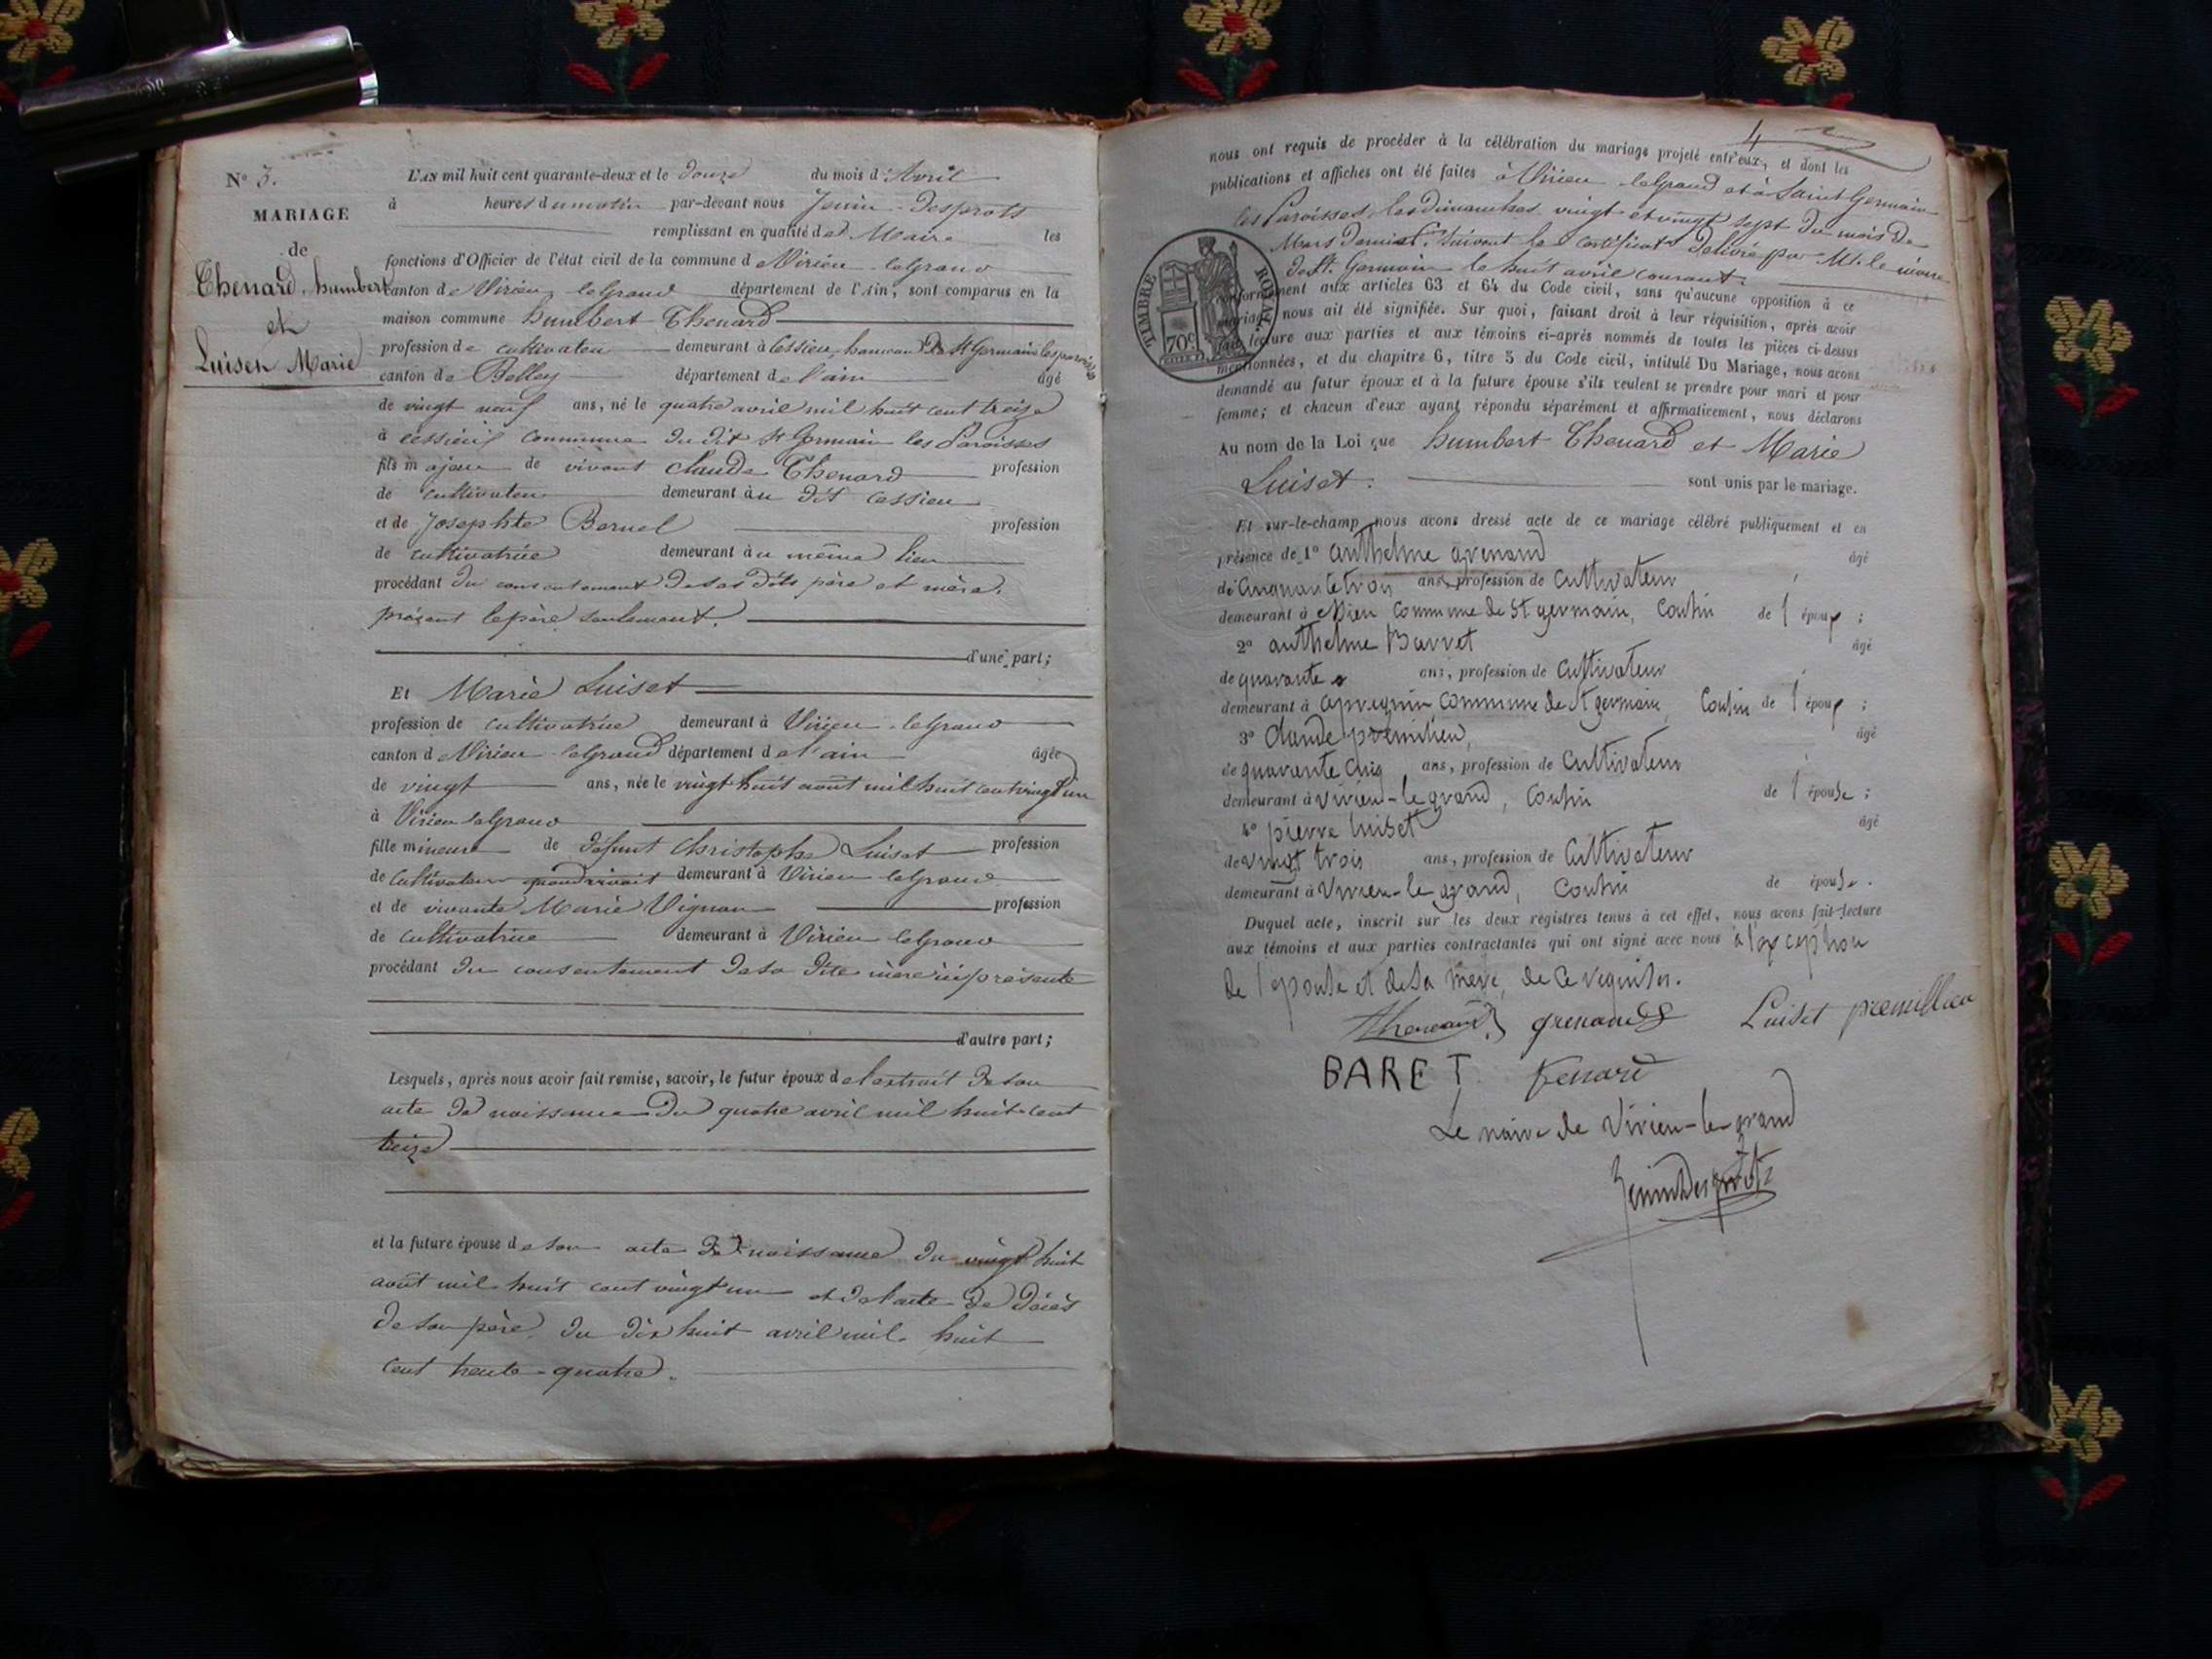 N° 3.
MARIAGE
de
Thenard humbert
et
Luiset Marie
L'AN mil huit cent quarante-deux et le douze du mois d'Avril
à heures du matin par-devant nous Jenin-Desprots
remplissant en qualité de Maire les
fonctions d'Officier de l'état civil de la commune de Virieu legrand
canton de Virieu legrand département de l'Ain, sont comparus en la
maison commune humbert Thenard
profession de cultivateur demeurant à Cessieu, hameau de St Germain les paroisses
canton de Belley département de l'ain âgé
de vingt neuf ans, né le quatre avril mil huit cent treize
à commune du dit St Germain les Paroisses
fils majeur de vivant Claude Thenard profession
de cultivateur demeurant au dit cessieu
et de Josephte profession
de cultivatrice demeurant au même lieu
procédant du consentement de ses dits père et mère.
présent le père seulement.
d'une part;
Et Marie Luiset
profession de cultivatrice demeurant à Virieu-legrand
canton de Virieu legrand département de l'ain âgée
de vingt ans, née le vingt huit août mil huit cent vingt un
à Virieu legrand
fille mineure de défunt Christophe Luiset profession
de Cultivateur quand vivait demeurant à Virieu legrand
et de vivante Marie profession
de cultivatrice demeurant à Virieu legrand
procédant du consentement de sa dite mère ici présente
d'autre part;
Lesquels, après nous avoir fait remise, savoir, le futur époux de l'extrait de son
acte de naissance du quatre avril mil huit cent
treize
et la future épouse de son acte de naissance du vingt huit
août mil huit cent vingt un et de l'acte de décès
de son père du dix huit avril mil huit
cent trente-quatre.
4
nous ont requis de procéder à la célébration du mariage projeté entr'eux, et dont les
publications et affiches ont été faites à Virieu legrand et à Saint Germain
les Paroisses les dimanches vingt et vingt sept du mois de
Mars dernier. Suivant le certificat délivré par Mr. le maire
de St. Germain le huit avril courant.
TIMBRE ROYAL.
70c.
conformément aux articles 63 et 64 du Code civil, sans qu'aucune opposition à ce
mariage nous ait été signifiée. Sur quoi, faisant droit à leur réquisition, après avoir
fait lecture aux parties et aux témoins ci-après nommés de toutes les pièces ci-dessus
mentionnées, et du chapitre 6, titre 5 du Code civil, intitulé Du Mariage, nous avons
demandé au futur époux et à la future épouse s'ils veulent se prendre pour mari et pour
femme; et chacun d'eux ayant répondu séparément et affirmativement, nous déclarons
Au nom de la Loi que humbert Thenard et Marie
Luiset. sont unis par le mariage.
Et sur-le-champ nous avons dressé acte de ce mariage célébré publiquement et en
présence de 1° anthelme grenand âgé
de Cinquante trois ans, profession de Cultivateur
demeurant à commune de St germain, Cousin de l'époux ;
2° anthelme Barret âgé
de quarante ans, profession de Cultivateur
demeurant à apregnin Commune de St germain, Cousin de l'époux ;
3° Claude premilieu, âgé
de quarante cinq ans, profession de Cultivateur
demeurant à Virieu-le-grand, Cousin de l'épouse ;
4° pierre luiset âgé
de vingt trois ans, profession de Cultivateur
demeurant à Virieu-le-grand, Cousin de épouse.
Duquel acte, inscrit sur les deux registres tenus à cet effet, nous avons fait lecture
aux témoins et aux parties contractantes qui ont signé avec nous à l'exception
de l'epouse et de sa mere, de ce requises.
thenard grenand Luiset premillieu
BARET tenard
Le maire de Virieu-le-grand
Jenin Desprots